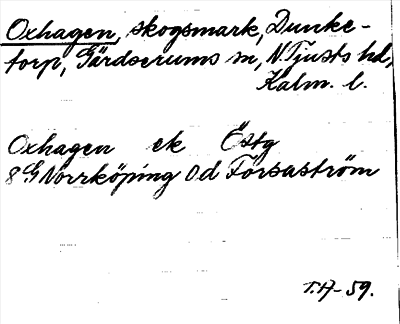 Oxhagen, skogsmark, Dunke-
torp, Gärdserums sn, N. Tjusts hd,
Kalm. l.
Oxhagen ek Östg
8 G Norrköping 0 d Forsaström
T.H-59.